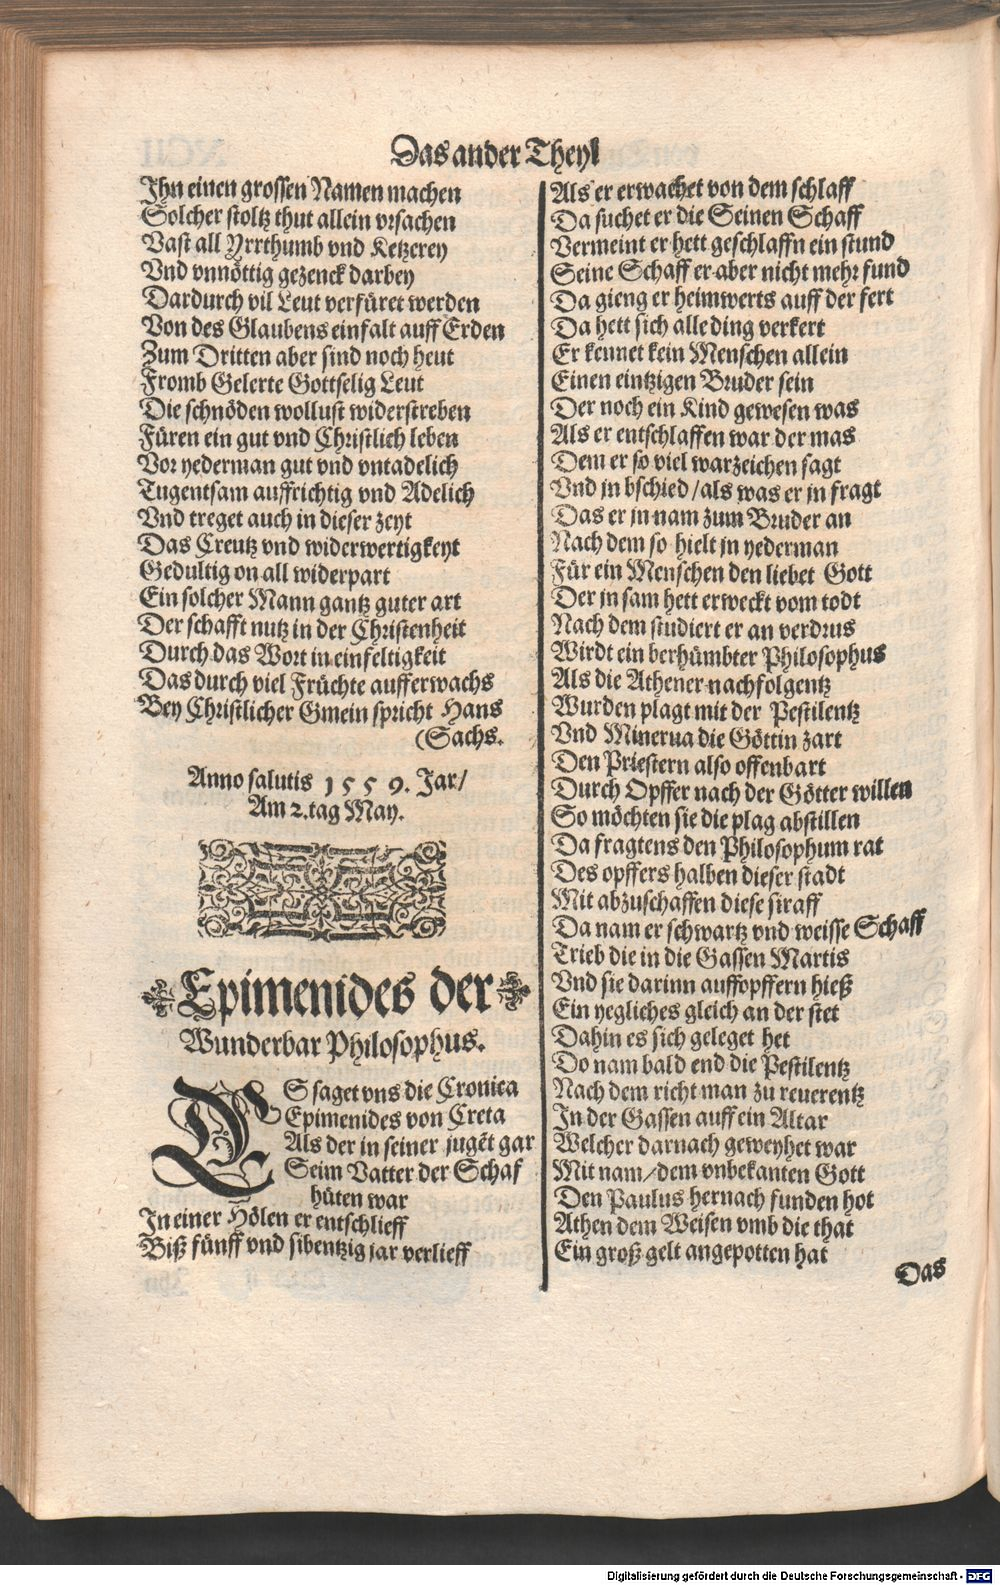 Das ander Theyl
Ihn einen grossen Namen machen
Solcher stoltz thut allein vrsachen
Vast all Yrrthumb vnd Ketzerey
Vnd vnnöttig gezenck darbey
Dardurch vil Leut verfüret werden
Von des Glaubens einfalt auff Erden
Zum Dritten aber sind noch heut
Fromb Gelerte Gottselig Leut
Die schnöden wollust widerstreben
Füren ein gut vnd Christlich leben
Vor yederman gut vnd vntadelich
Tugentsam auffrichtig vnd Adelich
Vnd treget auch in dieser zeyt
Das Creutz vnd widerwertigkeyt
Gedultig on all widerpart
Ein solcher Mann gantz guter art
Der schafft nutz in der Christenheit
Durch das Wort in einfeltigkeit
Das durch viel Früchte aufferwachs
Bey Christlicher Gmein spricht Hans
(Sachs.
Anno salutis 1559. Jar/
Am 2. tag May.
Epimenides der
Wunderbar Philosophus.
ES saget vns die Cronica
Epimenides von Creta
Als der in seiner jugēt gar
Seim Vatter der Schaf
hüten war
In einer Hölen er entschlieff
Biß fünff vnd sibentzig jar verlieff
Als er erwachet von dem schlaff
Da suchet er die Seinen Schaff
Vermeint er hett geschlaffn ein stund
Seine Schaff er aber nicht mehr fund
Da gieng er heimwerts auff der fert
Da hett sich alle ding verkert
Er kennet kein Menschen allein
Einen eintzigen Bruder sein
Der noch ein Kind gewesen was
Als er entschlaffen war der mas
Dem er so viel warzeichen sagt
Vnd jn bschied/als was er jn fragt
Das er jn nam zum Bruder an
Nach dem so hielt jn yederman
Für ein Menschen den liebet Gott
Der jn sam hett erweckt vom todt
Nach dem studiert er an verdrus
Wirdt ein berhümbter Philosophus
Als die Athener nachfolgentz
Wurden plagt mit der Pestilentz
Vnd Minerua die Göttin zart
Den Priestern also offenbart
Durch Opffer nach der Götter willen
So möchten sie die plag abstillen
Da fragtens den Philosophum rat
Des opffers halben dieser stadt
Mit abzuschaffen diese straff
Da nam er schwartz vnd weisse Schaff
Trieb die in die Gassen Martis
Vnd sie darinn auffopffern hieß
Ein yegliches gleich an der stet
Dahin es sich geleget het
Do nam bald end die Pestilentz
Nach dem richt man zu reuerentz
In der Gassen auff ein Altar
Welcher darnach geweyhet war
Mit nam/dem vnbekanten Gott
Den Paulus hernach funden hot
Athen dem Weisen vmb die that
Ein groß gelt angepotten hat
Das
Digitalisierung gefördert durch die Deutsche Forschungsgemeinschaft - DFG